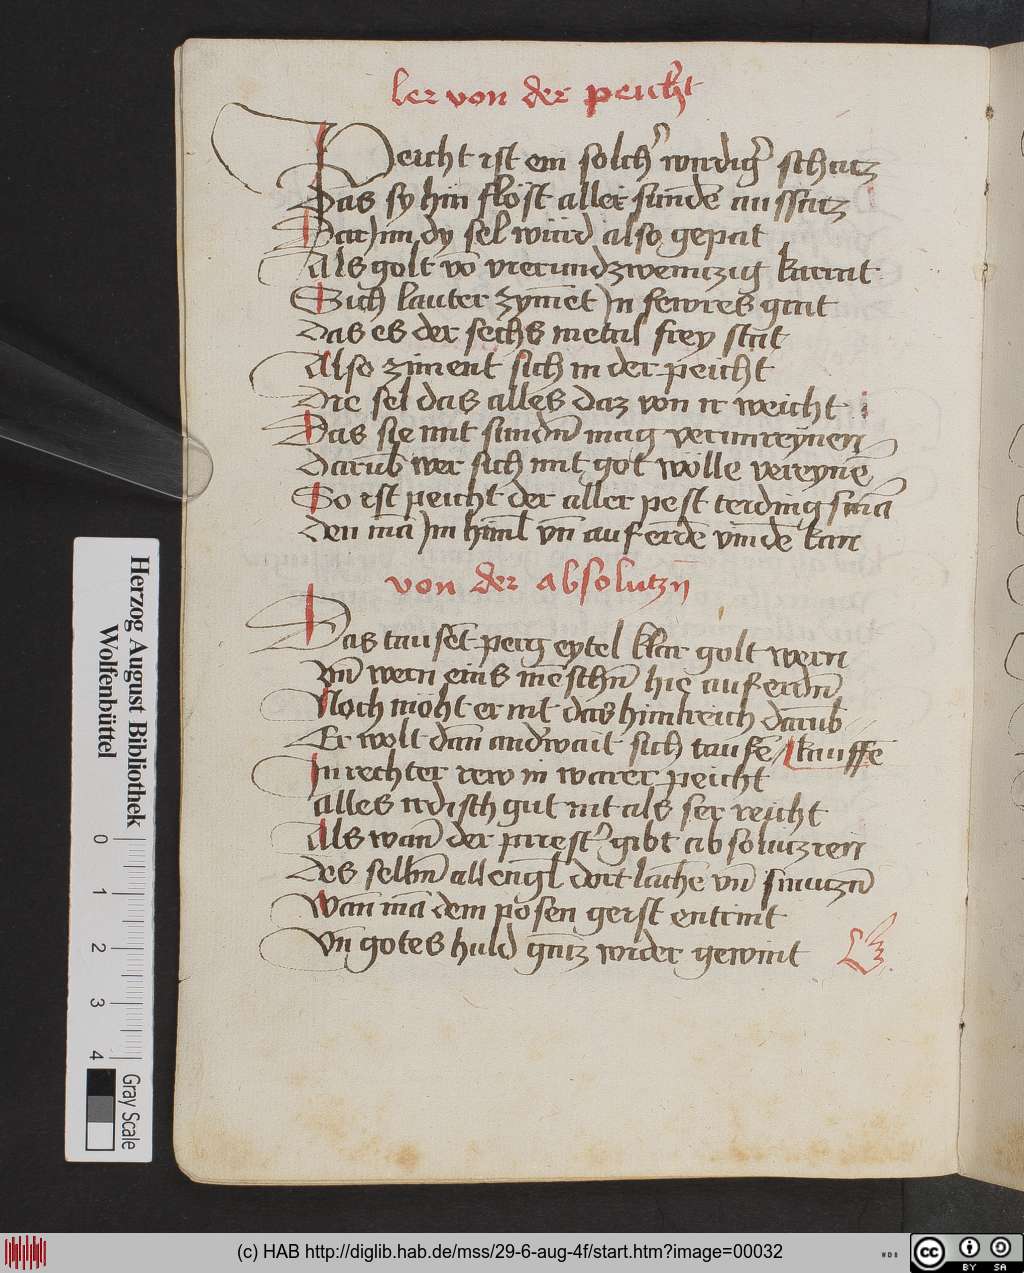 ler von der peicht
Peicht ist ein solch' wirdig' schacz
Das sy hin flöst aller sunde aussacz
Darjnn dy sel wird also gepat
Als golt vō vierundzweinczig karrat
Sich lauter zymēt Jn fewres grat
das es der sechs metall frey stat
Also ziment sich in der peicht
Die sel das alles daz von ir weicht
Das sie mit sundn̄ mag verunreynen
darūb wer sich mit got wölle vereynē
So ist peicht der aller pest teiding
den mā Jm himl vn̄ auf erde vinde kan
von der absolutzn̄
Das tausēt perg eytel klar golt wern
vn̄ wern eins mēschn̄ hie auf erdn̄
Noch möht er nit das himlreich darūb
Er wolt dan̄ andˀwait sich taufē kauffē
Jn rechter rew in warer peicht
alles irdisch gut nit als ser reicht
Als wan̄ der priestˀ gibt absoluczien
Des selbn̄ all engl dort lachē vn̄ smuczn̄
Wan mā dem pösen geist entrint
vn̄ gotes huld gancz wider gewint
Herzog August Bibliothek
Wolfenbüttel
0 1 2 3 4
Gray Scale
(c) HAB http://diglib.hab.de/mss/29-6-aug-4f/start.htm?image=00032
WDB
cc BY SA